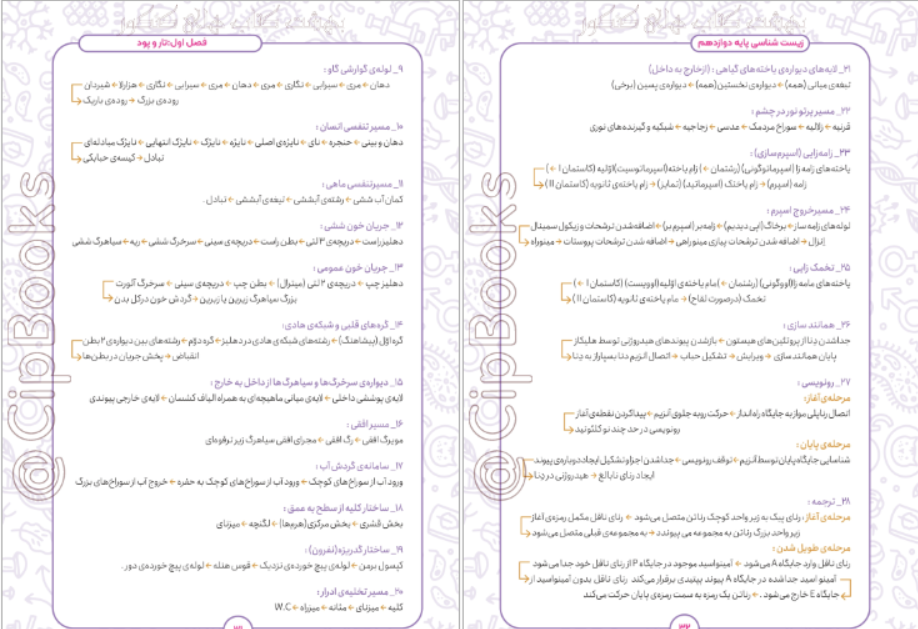 بهشت کتاب های کنکور
زیست شناسی پایه دوازدهم
۲۱_ لایه‌های دیواره‌ی یاخته‌های گیاهی : (ازخارج به داخل)
تیغه‌ی میانی (همه) ← دیواره‌ی نخستین (همه) ← دیواره‌ی پسین (برخی)
۲۲_ مسیر پرتو نور در چشم :
قرنیه ← زلالیه ← سوراخ مردمک ← عدسی ← زجاجیه ← شبکیه و گیرنده‌های نوری
۲۳_ زامه‌زایی (اسپرم‌سازی) :
یاخته‌های زامه زا (اسپرماتوگونی) (رشتمان ← ) زام یاخته(اسپرماتوسیت)اوّلیه (کاستمان I ← )
زامه (اسپرم) ← زام یاختک (اسپرماتید) (تمایز) ← زام یاخته‌ی ثانویه (کاستمان II)
۲۴_ مسیرخروج اسپرم :
لوله‌های زامه ساز ← برخاگ(اپی دیدیم) ← زامه‌بر (اسپرم بر) ← اضافه‌شدن ترشحات وزیکول سمینال
اِنزال ← اضافه شدن ترشحات پیازی میزراهی ← اضافه شدن ترشحات پروستات ← میزراه
۲۵_ تخمک زایی :
یاخته‌های مامه زا(اووگونی) (رشتمان ← )مام یاخته‌ی اوّلیه(اووسیت) (کاستمان I ← )
تخمک (درصورت لقاح) ← مام یاخته‌ی ثانویه (کاستمان II)
۲۶_ همانند سازی :
جداشدن دِنا از پروتئین‌های هیستون ← بازشدن پیوندهای هیدروژنی توسط هلیکاز
پایان همانندسازی ← ویرایش ← تشکیل حباب ← اتصال آنزیم دنا بسپاراز به دِنا
۲۷_ رونویسی :
مرحله‌ی آغاز:
اتصال رناپلی مراز به جایگاه راه‌انداز ← حرکت رو به جلوی آنزیم ← پیداکردن نقطه‌ی آغاز
رونویسی در حد چند نوکلئوتید
مرحله‌ی پایان :
شناسایی جایگاه پایان توسط آنزیم ← توقف رونویسی ← جداشدن اجزا و تشکیل ایجاد دوباره‌ی پیوند
ایجاد رنای نابالغ ← هیدروژنی در دِنا
۲۸_ ترجمه :
مرحله‌ی آغاز : رنای پیک به زیر واحد کوچک رناتن متصل می‌شود ← رنای ناقل مکمل رمزه‌ی آغاز
زیر واحد بزرگ رناتن به مجموعه می پیوندد ← به مجموعه‌ی قبلی متصل می‌شود
مرحله‌ی طویل شدن :
رنای ناقل وارد جایگاه A می‌شود ← آمینواسید موجود در جایگاه P از رنای ناقل خود جدا می شود
آمینو اسید جداشده در جایگاه A پیوند پپتیدی برقرار می‌کند رنای ناقل بدون آمینواسید از
جایگاه E خارج می‌شود . ← رناتن یک رمزه به سمت رمزه‌ی پایان حرکت می‌کند
۳۲
بهشت کتاب های کنکور
فصل اول:تار و پود
۹_ لوله‌ی گوارشی گاو :
دهان ← مری ← سیرابی ← نگاری ← مری ← دهان ← مری ← سیرابی ← نگاری ← هزارلا ← شیردان
روده‌ی بزرگ ← روده‌ی باریک
۱۰_ مسیر تنفسی انسان :
دهان و بینی ← حنجره ← نای ← نایژه‌ی اصلی ← نایژه ← نایژک ← نایژک انتهایی ← نایژک مبادله‌ای
تبادل ← کیسه‌ی حبابکی
۱۱_ مسیرتنفسی ماهی :
کمان آب ششی ← رشته‌ی آبششی ← تیغه‌ی آبششی ← تبادل .
۱۲_ جریان خون ششی :
دهلیز راست ← دریچه‌ی ۳ لتی ← بطن راست ← دریچه‌ی سینی ← سرخرگ ششی ← ریه ← سیاهرگ ششی
۱۳_ جریان خون عمومی :
دهلیز چپ ← دریچه‌ی ۲ لتی (میترال) ← بطن چپ ← دریچه‌ی سینی ← سرخرگ آئورت
بزرگ سیاهرگ زیرین یا زبرین ← گردش خون درکل بدن
۱۴_ گره‌های قلبی و شبکه‌ی هادی:
گره اوّل (پیشاهنگ) ← رشته‌های شبکه‌ی هادی در دهلیز ← گره دوّم ← رشته‌های بین دیواره‌ی ۲ بطن
انقباض ← پخش جریان در بطن‌ها
۱۵_ دیواره‌ی سرخرگ‌ها و سیاهرگ‌ها از داخل به خارج :
لایه‌ی پوششی داخلی ← لایه‌ی میانی ماهیچه‌ای به همراه الیاف کشسان ← لایه‌ی خارجی پیوندی
۱۶_ مسیر افقی :
مویرگ افقی ← رگ افقی ← مجرای افقی سیاهرگ زیر ترقوه‌ای
۱۷_ سامانه‌ی گردش آب :
ورود آب از سوراخ‌های کوچک ← ورود آب از سوراخ‌های کوچک به حفره ← خروج آب از سوراخ‌های بزرگ
۱۸_ ساختار کلیه از سطح به عمق :
بخش قشری ← بخش مرکزی(هرم‌ها) ← لگنچه ← میزنای
۱۹_ ساختار گُردیزه(نفرون) :
کپسول بومن ← لوله‌ی پیچ خورده‌ی نزدیک ← قوس هنله ← لوله‌ی پیچ خورده‌ی دور .
۲۰_ مسیر تخلیه‌ی ادرار :
کلیه ← میزنای ← مثانه ← میزراه ← W.C
۳۱
@CipBooks
@CipBooks